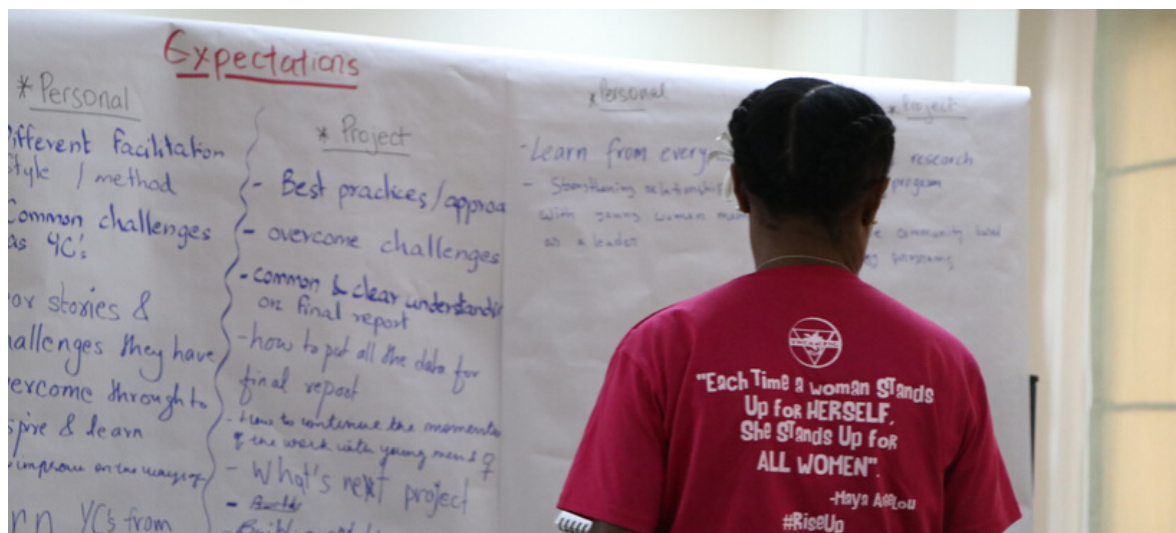 Expectations
* Personal
ifferent facilitation
style / method
Common challenges
as YC's
or stories &
hallenges they have
ercome through to
spire & learn
improve on the ways of
rn YCs from
* Project
- Best practices/approa
- overcome challenges
- Common & clear understandin
on final report
- how to put all the data for
final report
- How to continue the momento
of the work with young men & ♀
- What's next project
* Personal
- Learn from every
- Strengthening relationship
with young women
as a leader
* Project
research
program
community based
programs
"Each Time a woman Stands
Up for HERSELF,
She Stands Up for
ALL WOMEN".
-Maya Angelou
#RiseUp